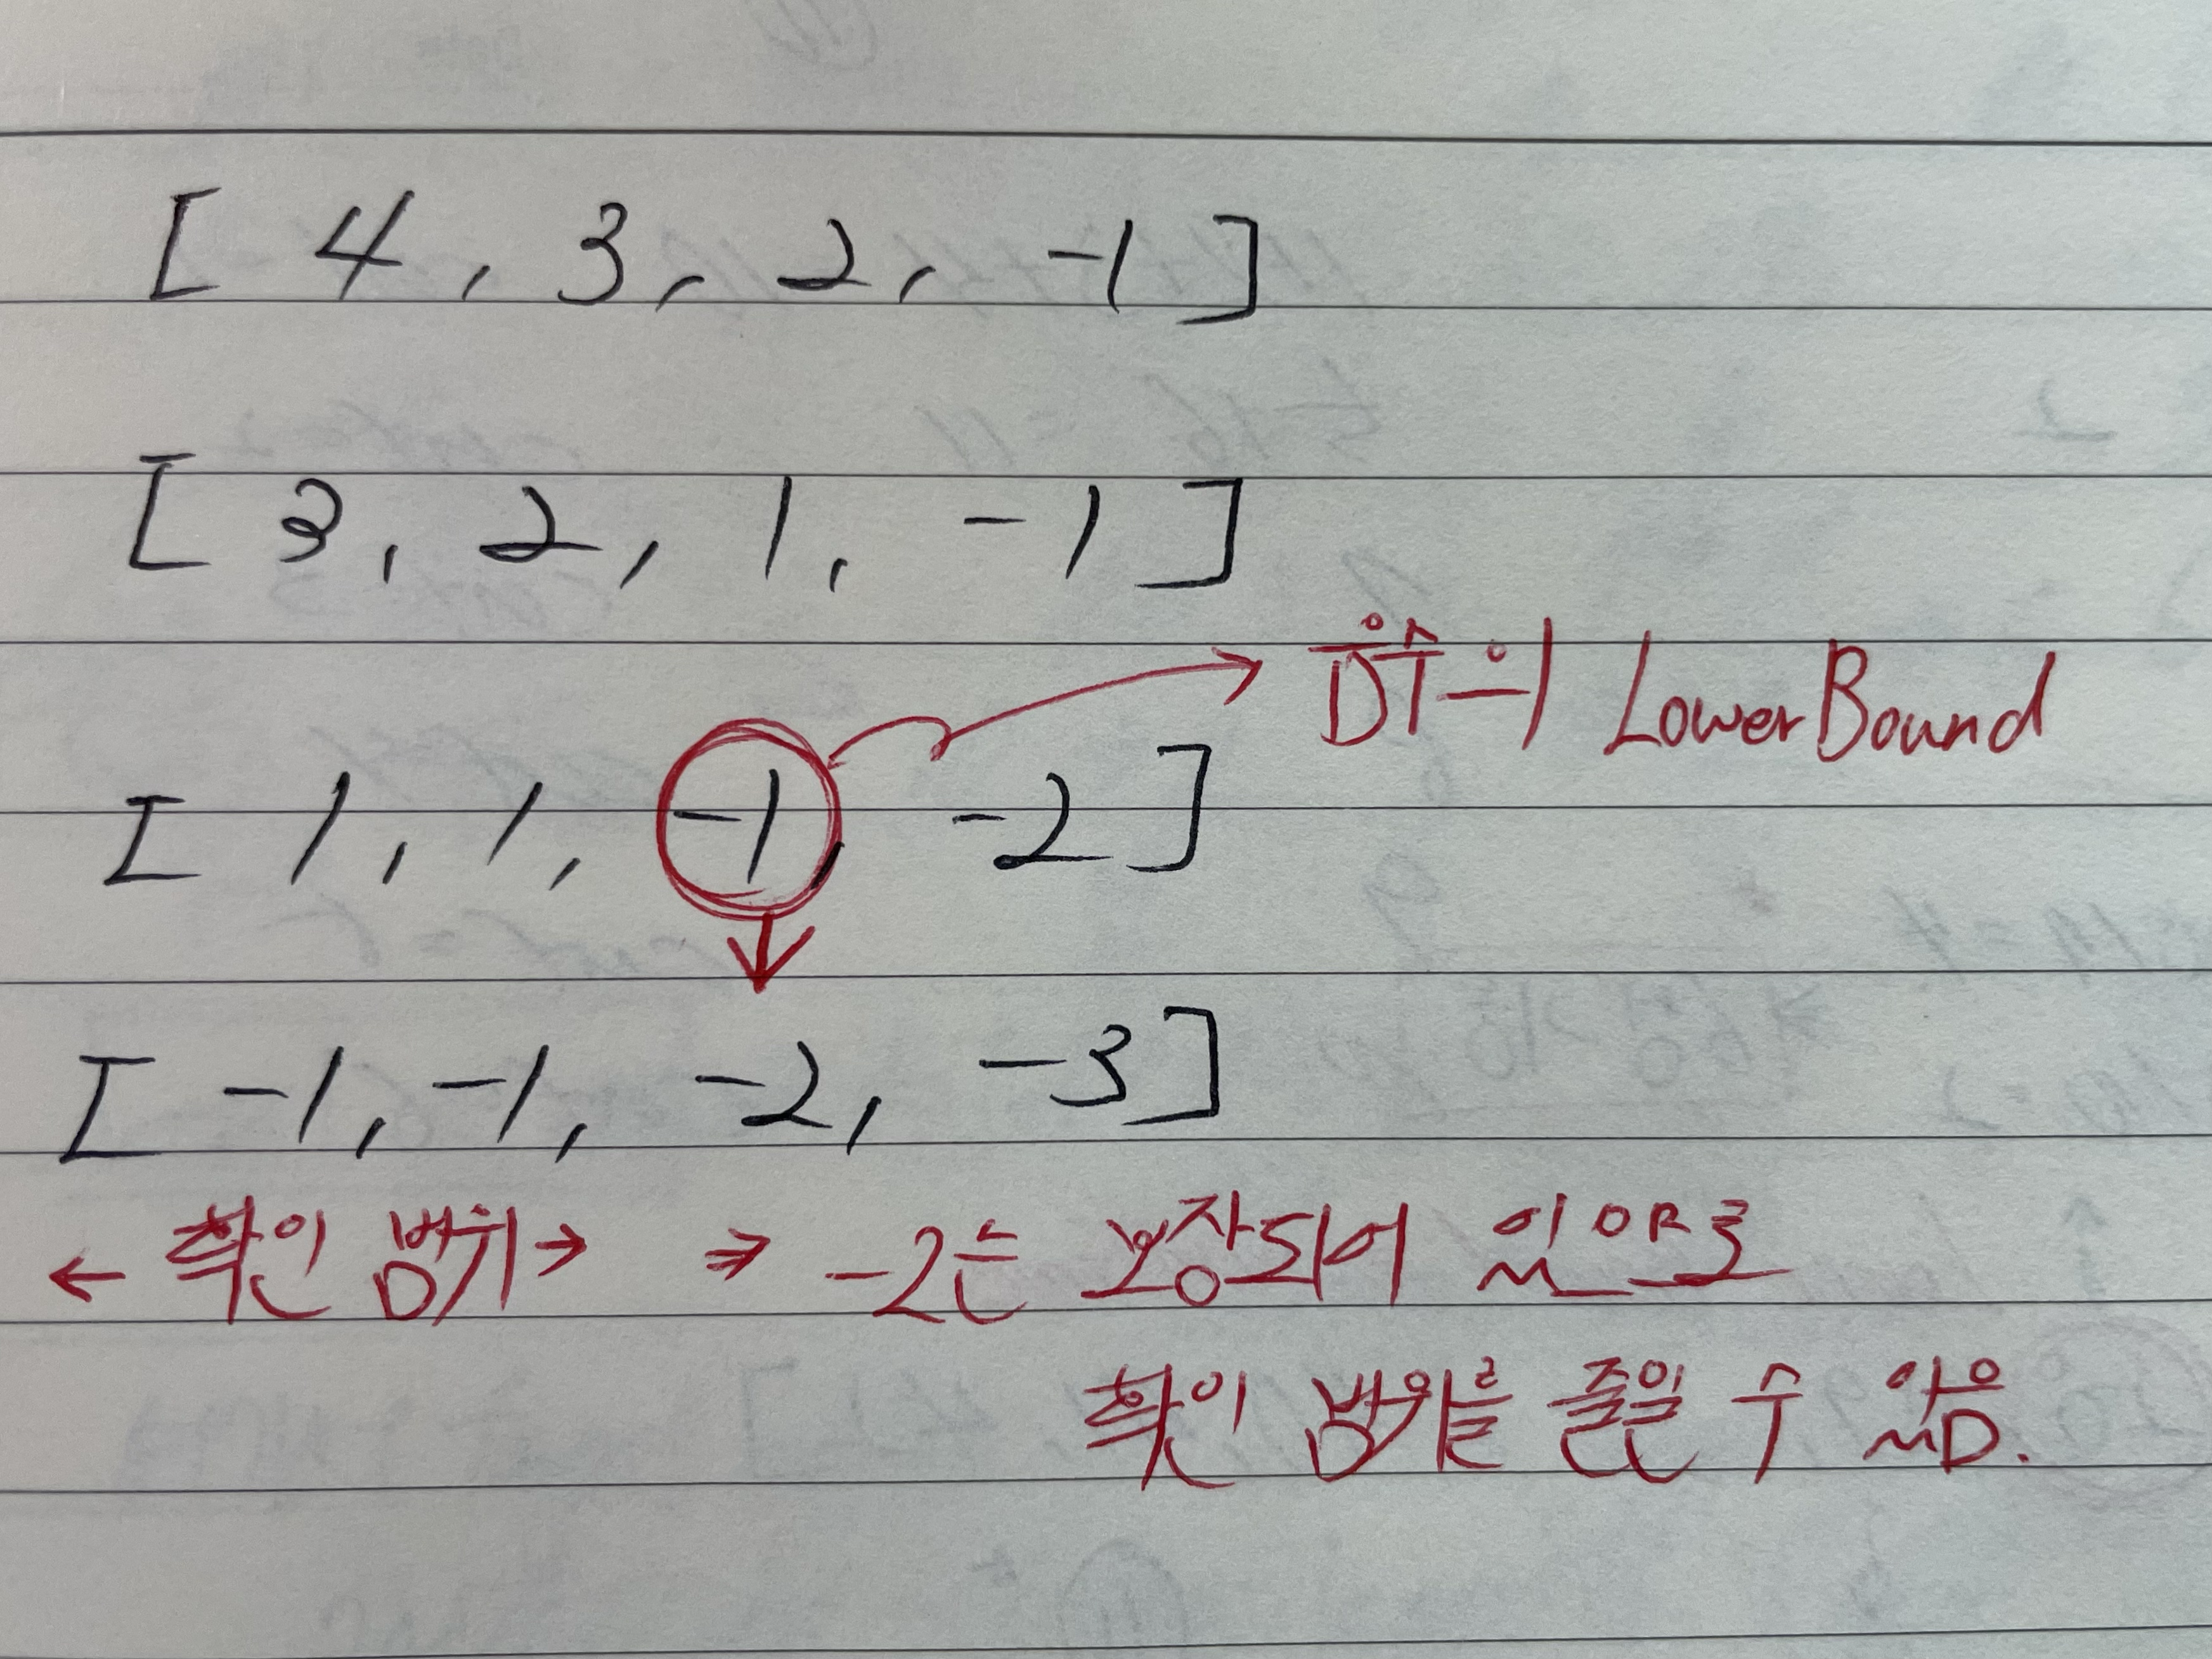 [ 4, 3, 2, -1 ]
[ 3, 2, 1, -1 ]
음수의 LowerBound
[ 1, 1, -1, -2 ]
[ -1, -1, -2, -3 ]
← 확인 범위 → ⇒ -2는 보장되어 있으므로
확인 범위를 줄일 수 있음.